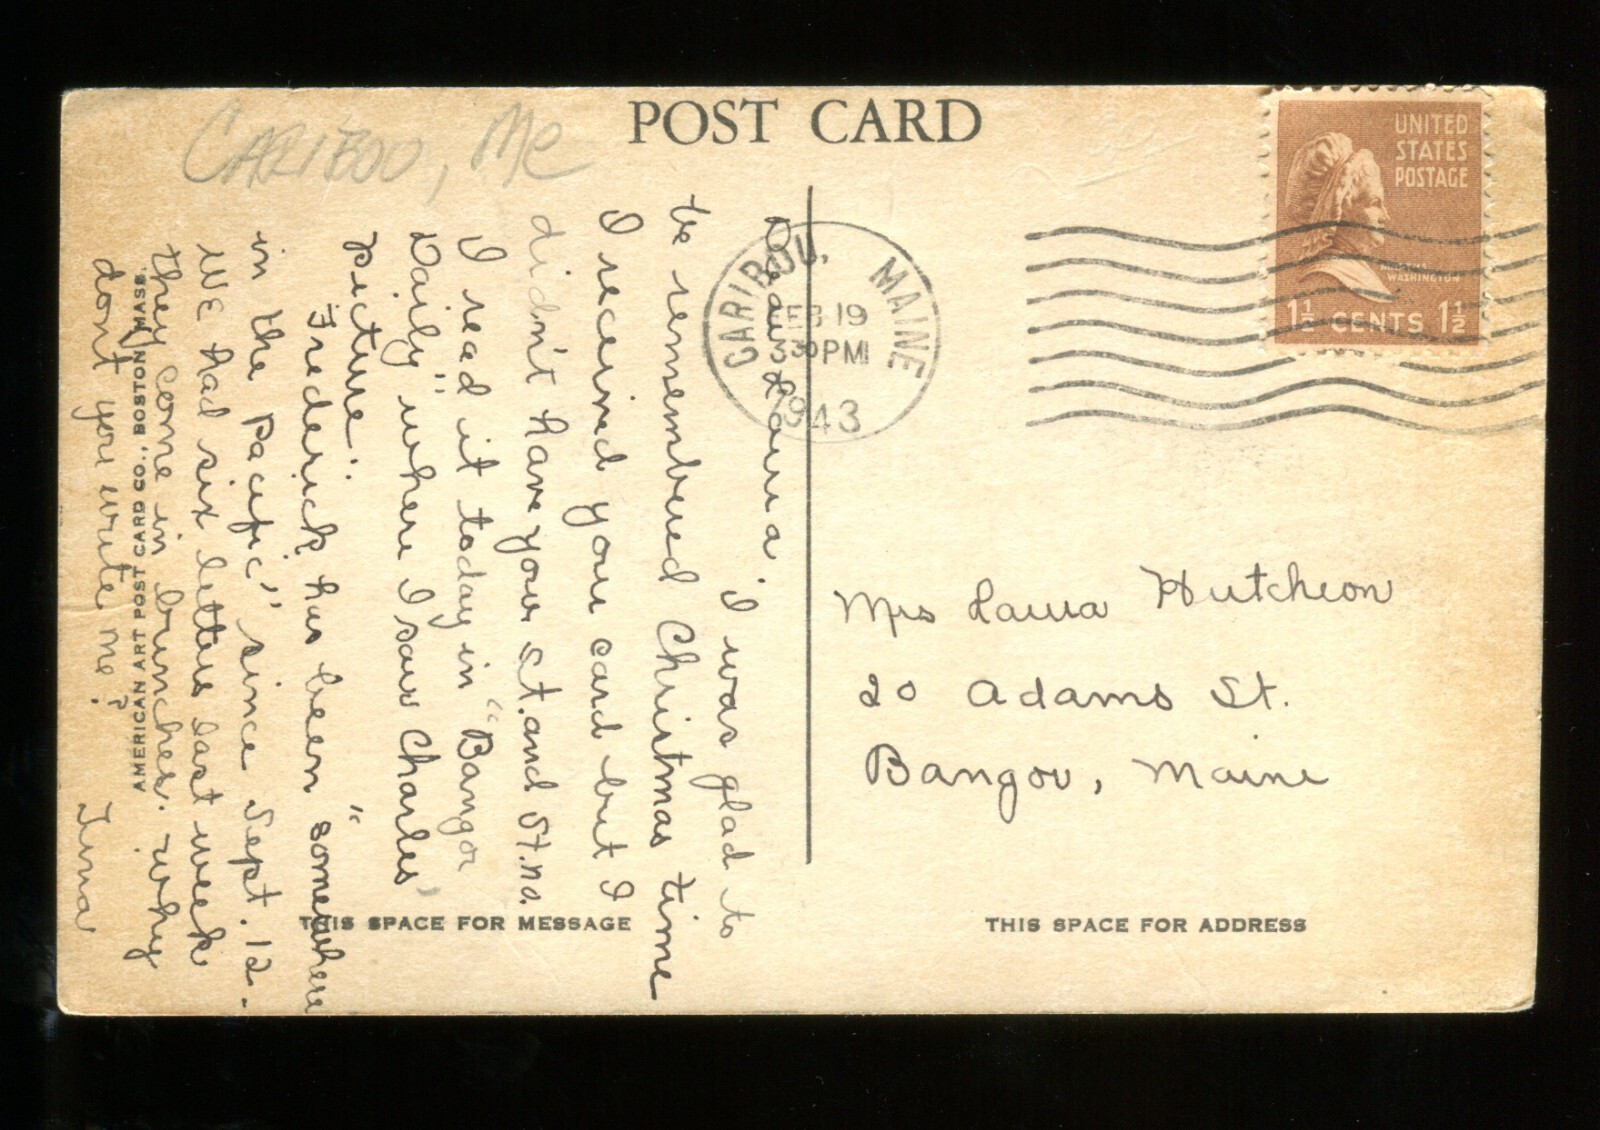 CARIBOO, Me
POST CARD
UNITED
STATES
POSTAGE
MARTHA
WASHINGTON
1½ CENTS 1½
CARIBOU, MAINE
FEB 19
3 30 PM
1943
Dear Laura, I was glad to
be remembered Christmas time
I received you card but I
didn't have your st. and St. no.
I read it today in "Bangor
Daily" where I saw Charles'
picture.
Frederick has been "somewhere
in the Pacific" since Sept. 12.
We had six letters last week
they come in bunches. Why
dont you write me? Tina
Mrs Laura Hutcheon
20 Adams St.
Bangor, Maine
THIS SPACE FOR MESSAGE
THIS SPACE FOR ADDRESS
AMERICAN ART POST CARD CO., BOSTON, MASS.